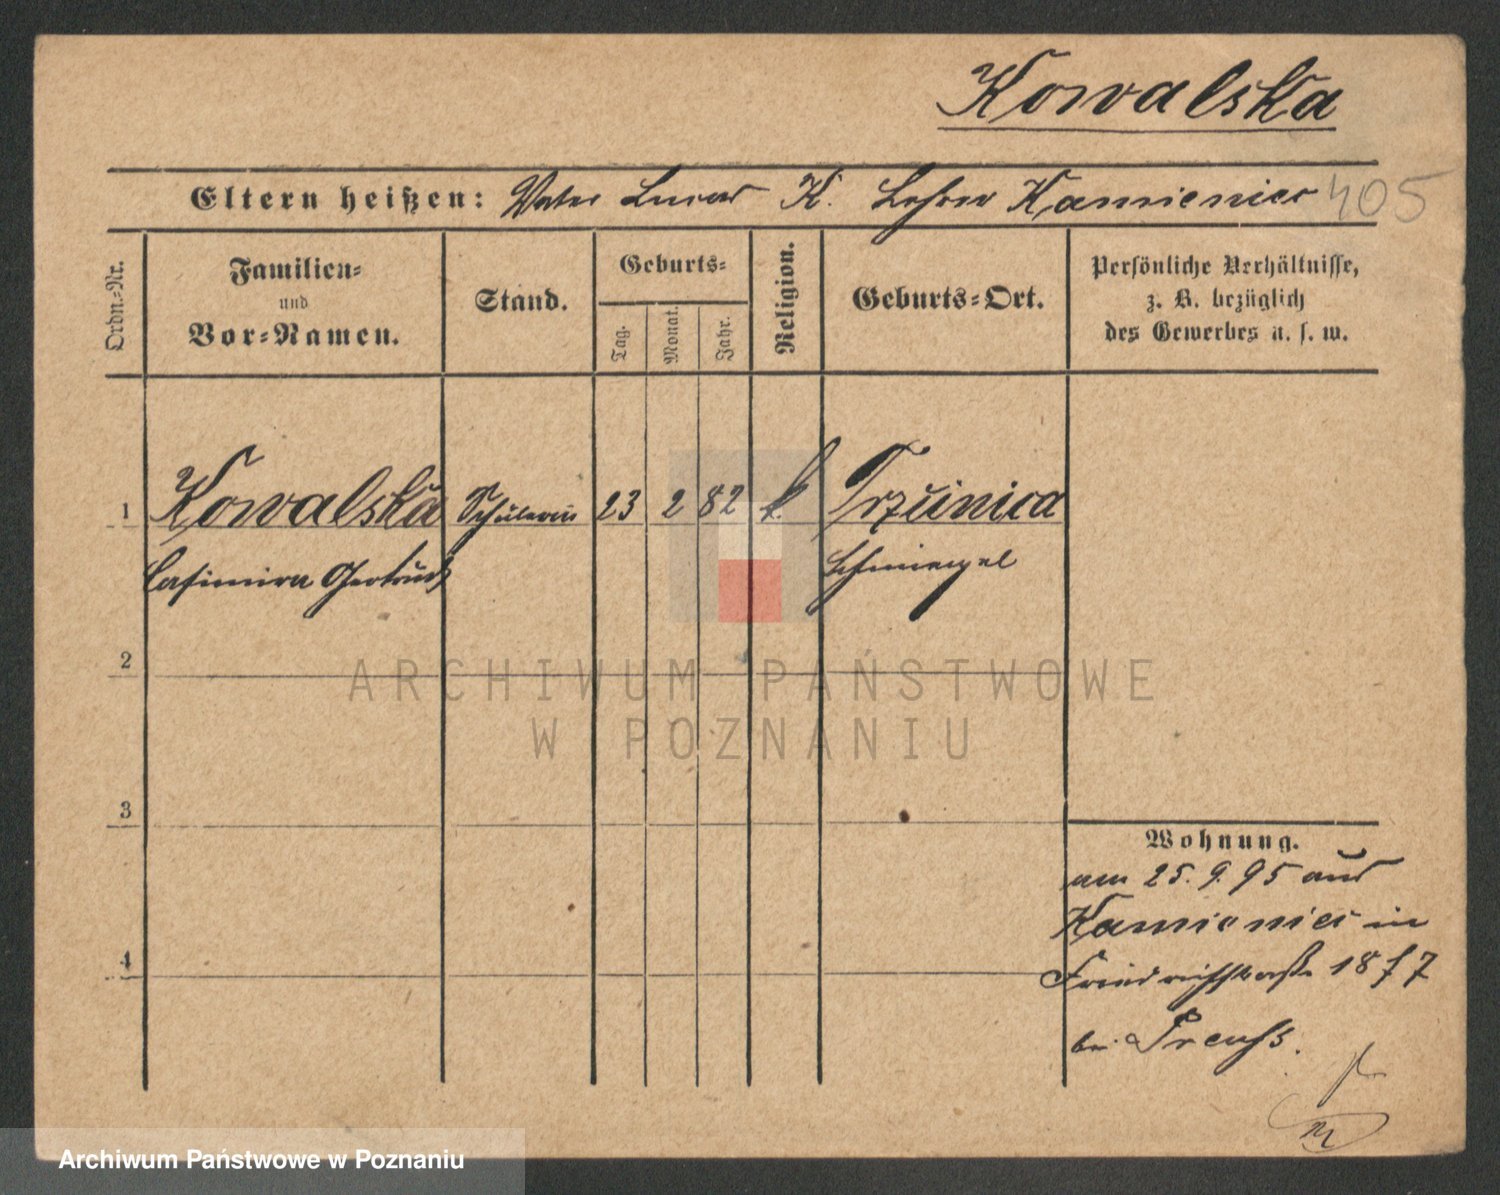 Kowalska
Eltern heißen: Vater Lucas K. Lehrer Kamieniec 405
Ordn.-Nr.
Familien-
und
Vor-Namen.
Stand.
Geburts-
Tag.
Monat.
Jahr.
Religion.
Geburts-Ort.
Persönliche Verhältnisse,
z. B. bezüglich
des Gewerbes u. s. w.
1 Kowalska Schülerin 23 2 82 k. Trzinica
Casimira Gertrud Schmiegel
2
ARCHIWUM PAŃSTWOWE
W POZNANIU
3
Wohnung.
am 25. 9. 95 aus
Kamieniec in
4
Friedrichstraße 18 f 7
bei Preuss.
Archiwum Państwowe w Poznaniu